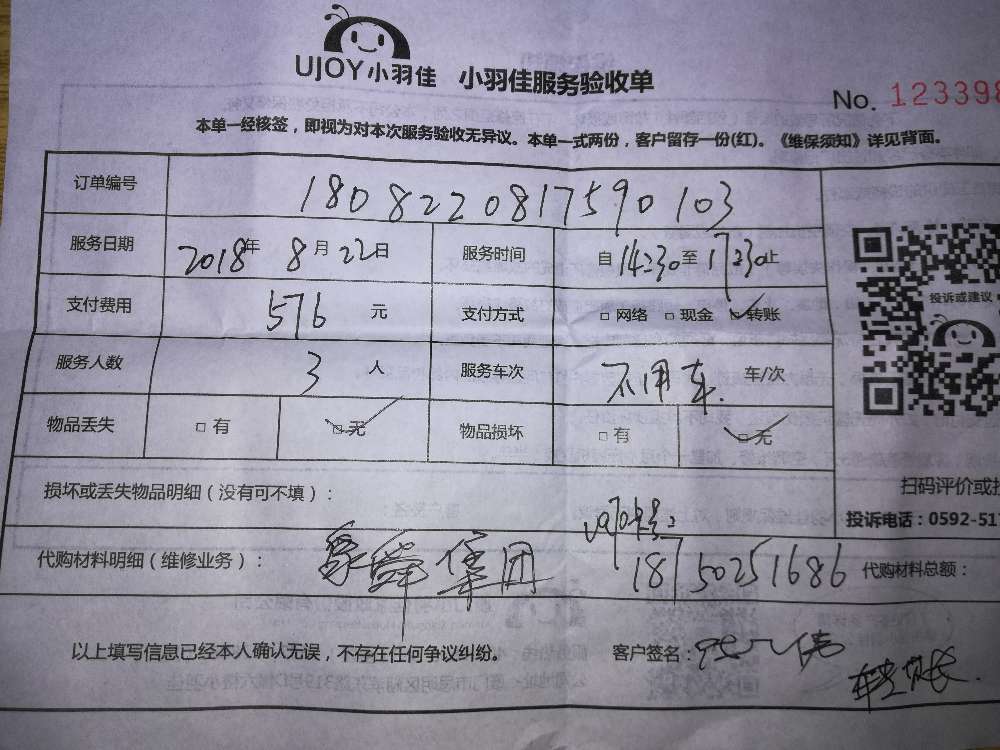 UJOY小羽佳 小羽佳服务验收单
No. 123398
本单一经核签，即视为对本次服务验收无异议。本单一式两份，客户留存一份(红)。《维保须知》详见背面。
订单编号 1808220817590103
服务日期 2018年8月22日 服务时间 自14:30至17:30止
支付费用 576 元 支付方式 □网络 □现金 ☑转账
服务人数 3 人 服务车次 不用车 车/次
物品丢失 □有 ☑无 物品损坏 □有 ☑无
投诉或建议
损坏或丢失物品明细（没有可不填）：
扫码评价或投
投诉电话：0592-517
代购材料明细（维修业务）： 集团 18750251686 代购材料总额：
以上填写信息已经本人确认无误，不存在任何争议纠纷。 客户签名：